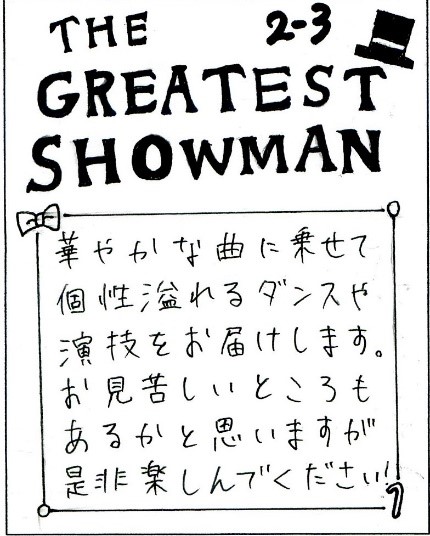 THE 2-3
GREATEST
SHOWMAN
華やかな曲に乗せて
個性溢れるダンスや
演技をお届けします。
お見苦しいところも
あるかと思いますが
是非楽しんでください!